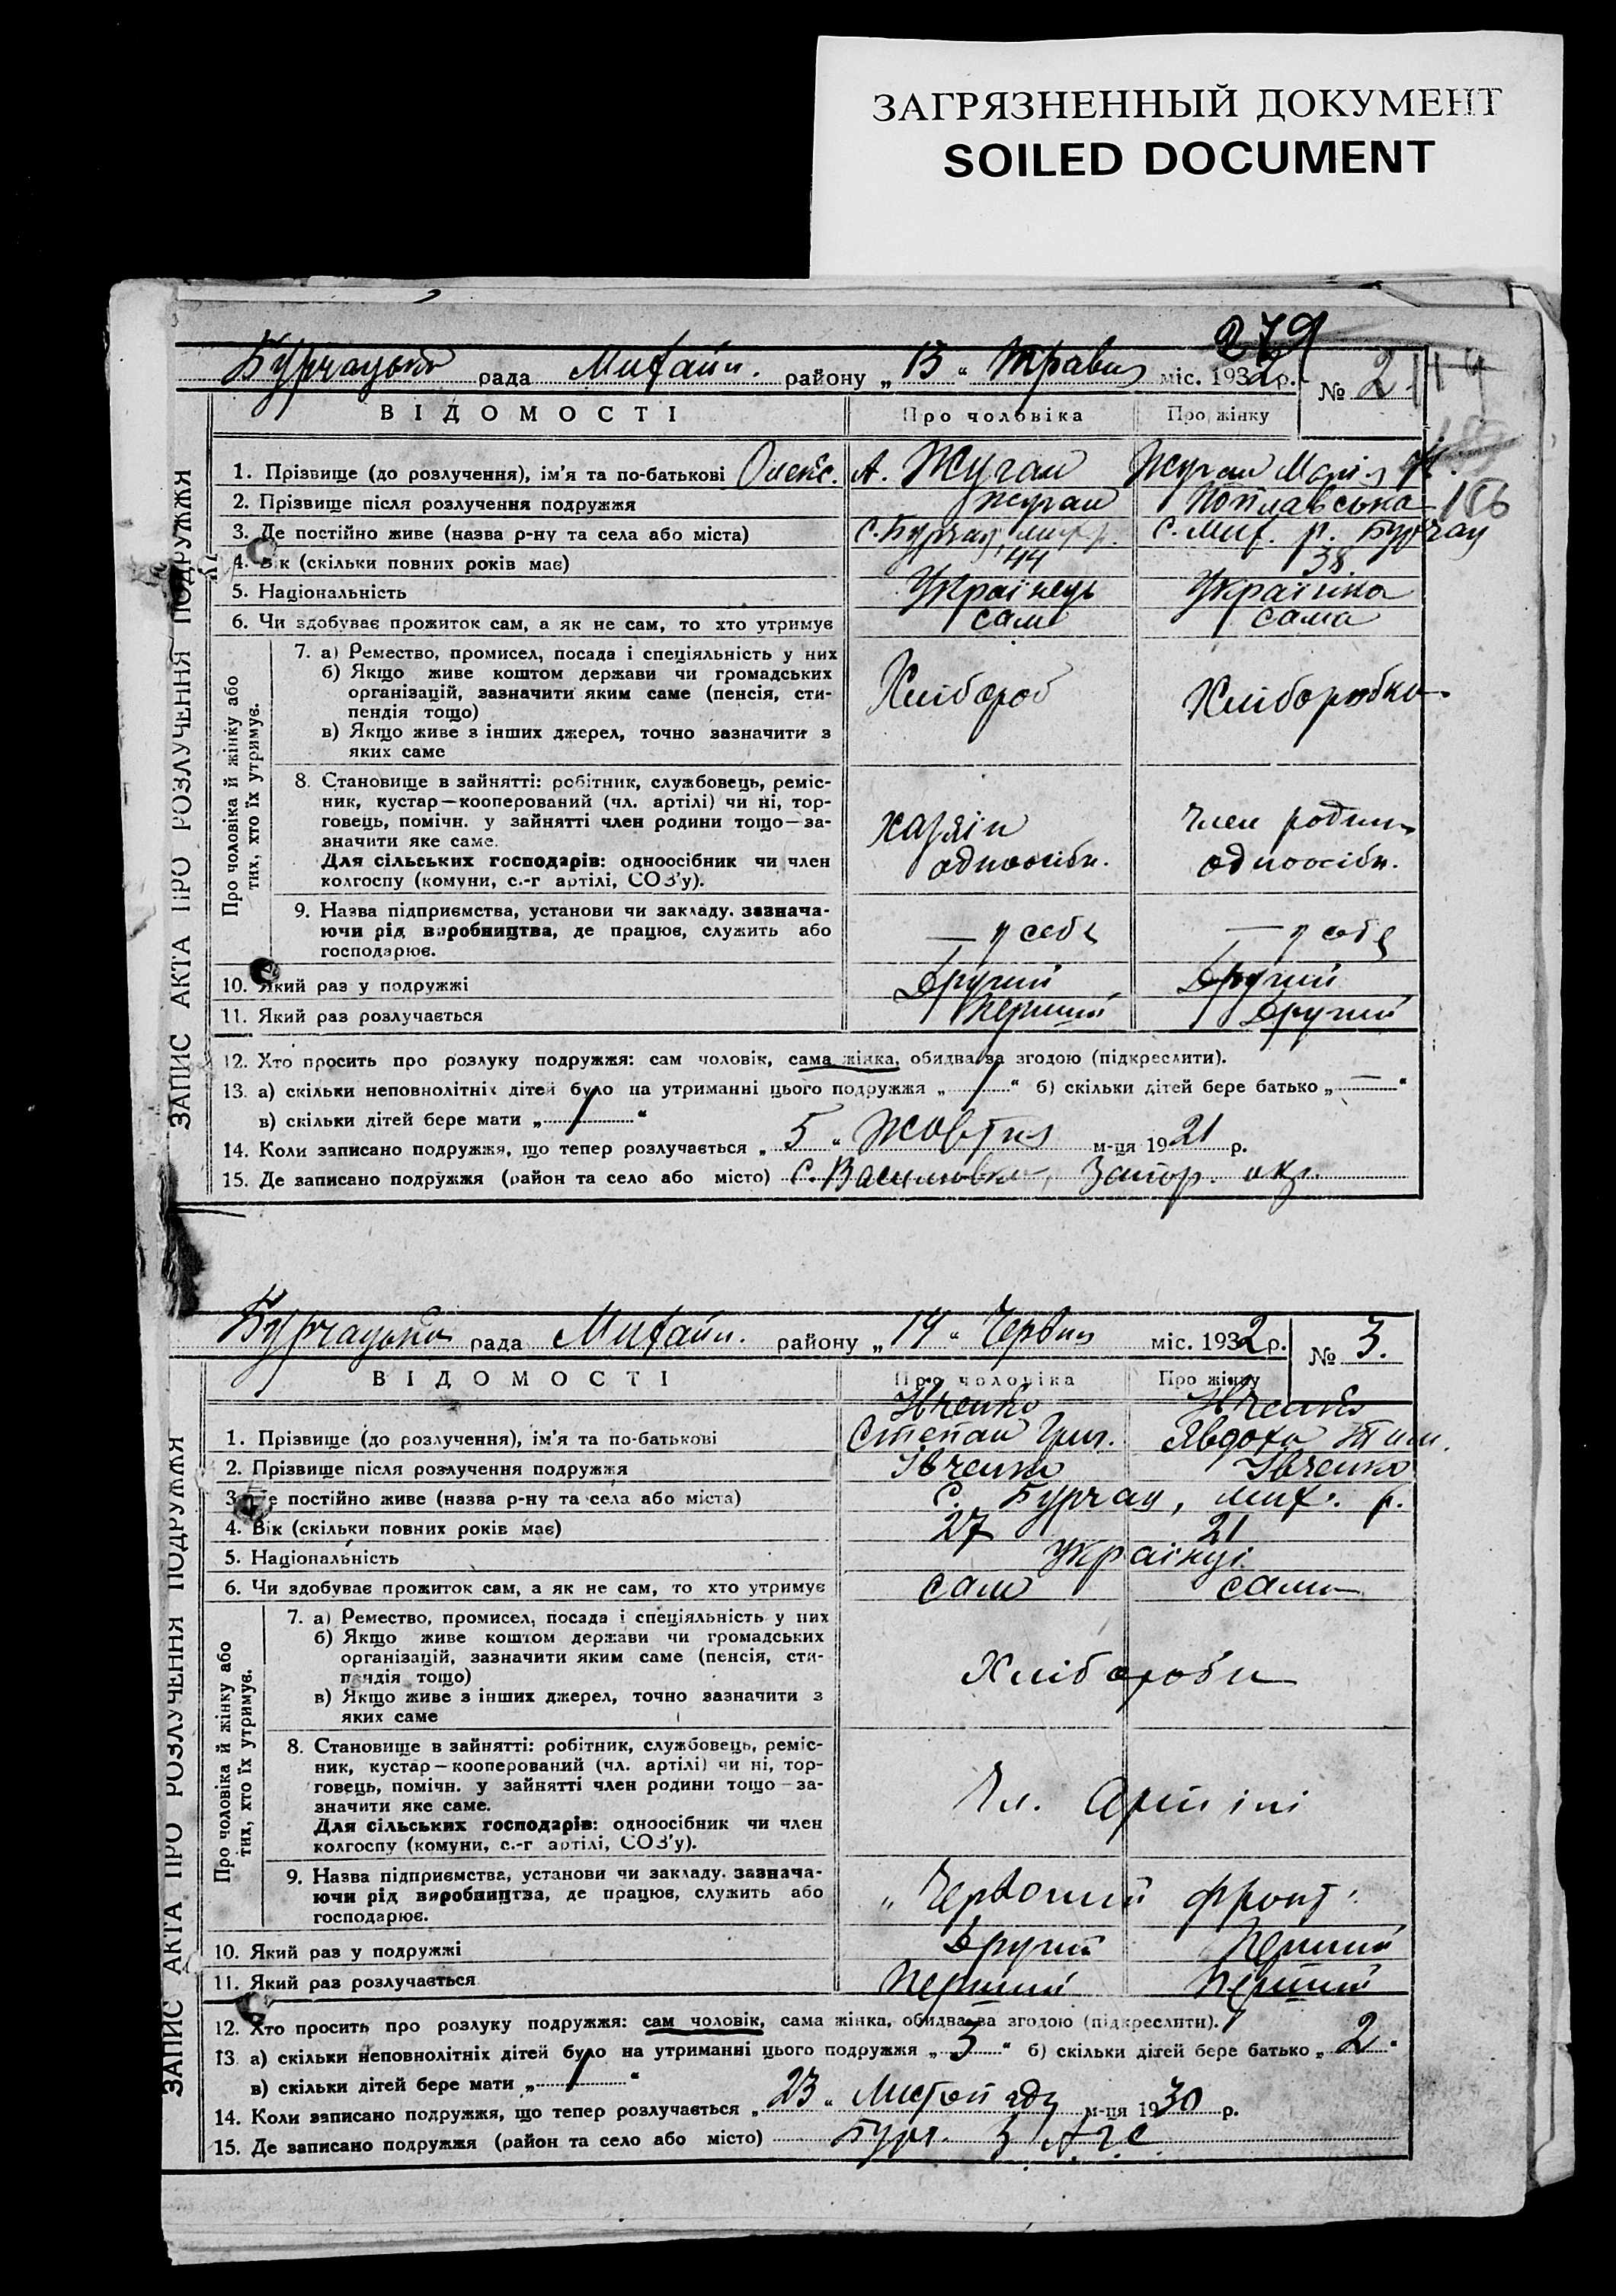 ЗАГРЯЗНЕННЫЙ ДОКУМЕНТ
SOILED DOCUMENT
279
Бурчацька рада Михайл. району „ 15 “ Травня міс. 1932 р. № 2
ВІДОМОСТІ Про чоловіка Про жінку
1. Прізвище (до розлучення), ім'я та по-батькові Олекс. А. Жуган Жуган Марія
2. Прізвище після розлучення подружжя Жуган Поплавська 156
3. Де постійно живе (назва р-ну та села або міста) С. Бурчац, мих. р. С. Мих. р. Бурчац
4. Вік (скільки повних років має) 44 38.
5. Національність Українець Українка
6. Чи здобуває прожиток сам, а як не сам, то хто утримує сам сама
7. а) Ремество, промисел, посада і спеціяльність у них
б) Якщо живе коштом держави чи громадських
організацій, зазначити яким саме (пенсія, сти-
пендія тощо) Хлібороб Хліборобка
в) Якщо живе з інших джерел, точно зазначити з
яких саме
8. Становище в зайнятті: робітник, службовець, реміс-
ник, кустар—кооперований (чл. артілі) чи ні, тор-
говець, помічн. у зайнятті член родини тощо—за- хазяін Член родини
значити яке саме.
Для сільських господарів: одноосібник чи член одноосібн. одноосібн.
колгоспу (комуни, с.-г артілі, СОЗ'у).
9. Назва підприємства, установи чи закладу. зазнача-
ючи рід виробництва, де працює, служить або — у себе — у себе
господарює.
10. Який раз у подружжі Другий Другий
11. Який раз розлучається Перший Другий
12. Хто просить про розлуку подружжя: сам чоловік, сама жінка, обидва за згодою (підкреслити).
13. а) скільки неповнолітніх дітей було на утриманні цього подружжя „ 1 “ б) скільки дітей бере батько „ — “
в) скільки дітей бере мати „ 1 “
14. Коли записано подружжя, що тепер розлучається „ 5 “ Жовтня м-ця 1921 р.
15. Де записано подружжя (район та село або місто) С. Василівка, Запор. окр.
Про чоловіка й жінку або
тих, хто їх утримує.
ЗАПИС АКТА ПРО РОЗЛУЧЕННЯ ПОДРУЖЖЯ
Бурчацька рада Михайл. району „ 14 “ Червня міс. 1932 р. № 3.
ВІДОМОСТІ Про чоловіка Про жінку
Івченко Івченко
1. Прізвище (до розлучення), ім'я та по-батькові Степан Григ. Явдоха Тим.
2. Прізвище після розлучення подружжя Івченко Івченко
3. Де постійно живе (назва р-ну та села або міста) С. Бурчац, мих. р.
4. Вік (скільки повних років має) 27 21
5. Національність Українці
6. Чи здобуває прожиток сам, а як не сам, то хто утримує сам сама
7. а) Ремество, промисел, посада і спеціяльність у них
б) Якщо живе коштом держави чи громадських
організацій, зазначити яким саме (пенсія, сти-
пендія тощо) Хлібороби
в) Якщо живе з інших джерел, точно зазначити з
яких саме
8. Становище в зайнятті: робітник, службовець, реміс-
ник, кустар—кооперований (чл. артілі) чи ні, тор-
говець, помічн. у зайнятті член родини тощо—за-
значити яке саме. Чл. Артілі
Для сільських господарів: одноосібник чи член
колгоспу (комуни, с.-г артілі, СОЗ'у).
9. Назва підприємства, установи чи закладу. зазнача-
ючи рід виробництва, де працює, служить або „Червоний фронт“
господарює.
10. Який раз у подружжі Другий Перший
11. Який раз розлучається Перший Перший
12. Хто просить про розлуку подружжя: сам чоловік, сама жінка, обидва за згодою (підкреслити).
13. а) скільки неповнолітніх дітей було на утриманні цього подружжя „ 3 “ б) скільки дітей бере батько „ 2 “
в) скільки дітей бере мати „ 1 “
14. Коли записано подружжя, що тепер розлучається „ 23 “ Листопаду м-ця 1930 р.
15. Де записано подружжя (район та село або місто) Бурч. ЗАГС
Про чоловіка й жінку або
тих, хто їх утримує.
ЗАПИС АКТА ПРО РОЗЛУЧЕННЯ ПОДРУЖЖЯ